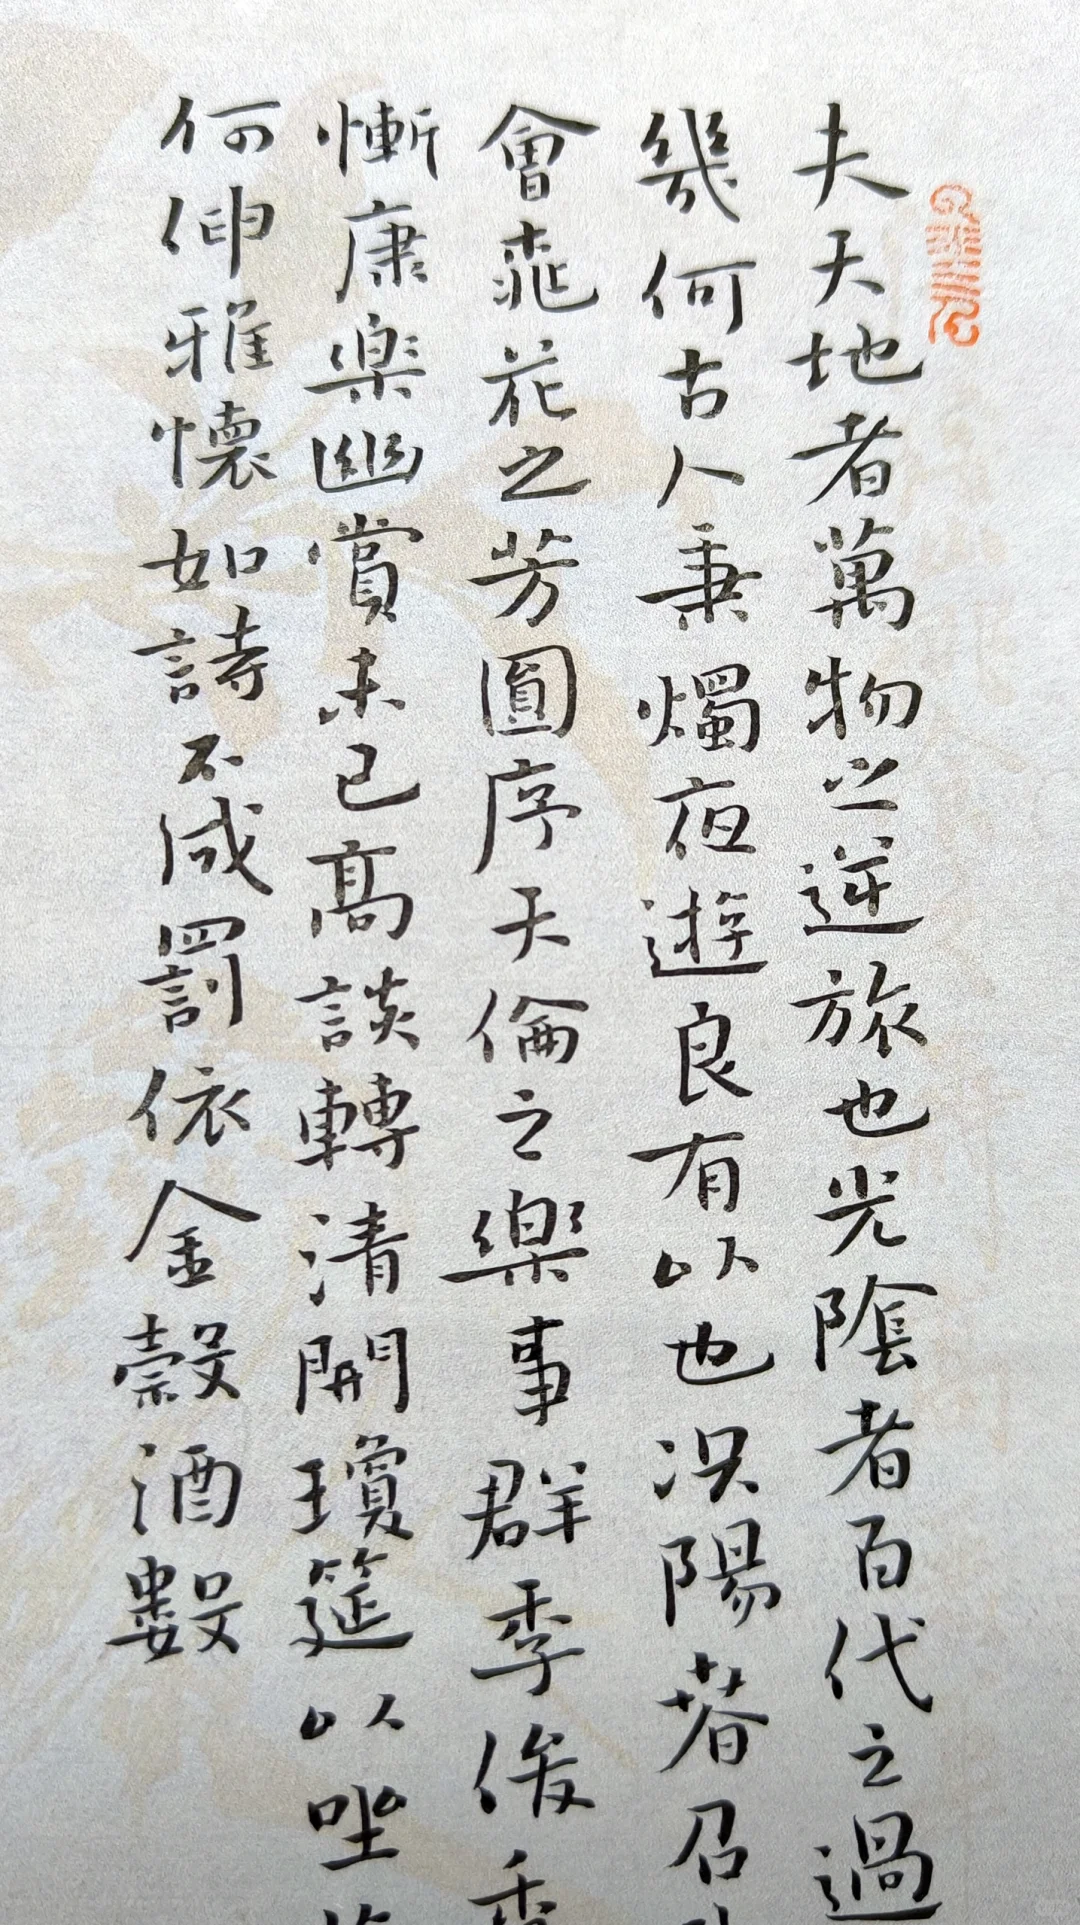 夫天地者萬物之逆旅也光陰者百代之過
幾何古人秉燭夜遊良有以也況陽春召
會桃花之芳園序天倫之樂事群季俊秀
慚康樂幽賞未已高談轉清開瓊筵以坐
何伸雅懷如詩不成罰依金穀酒數